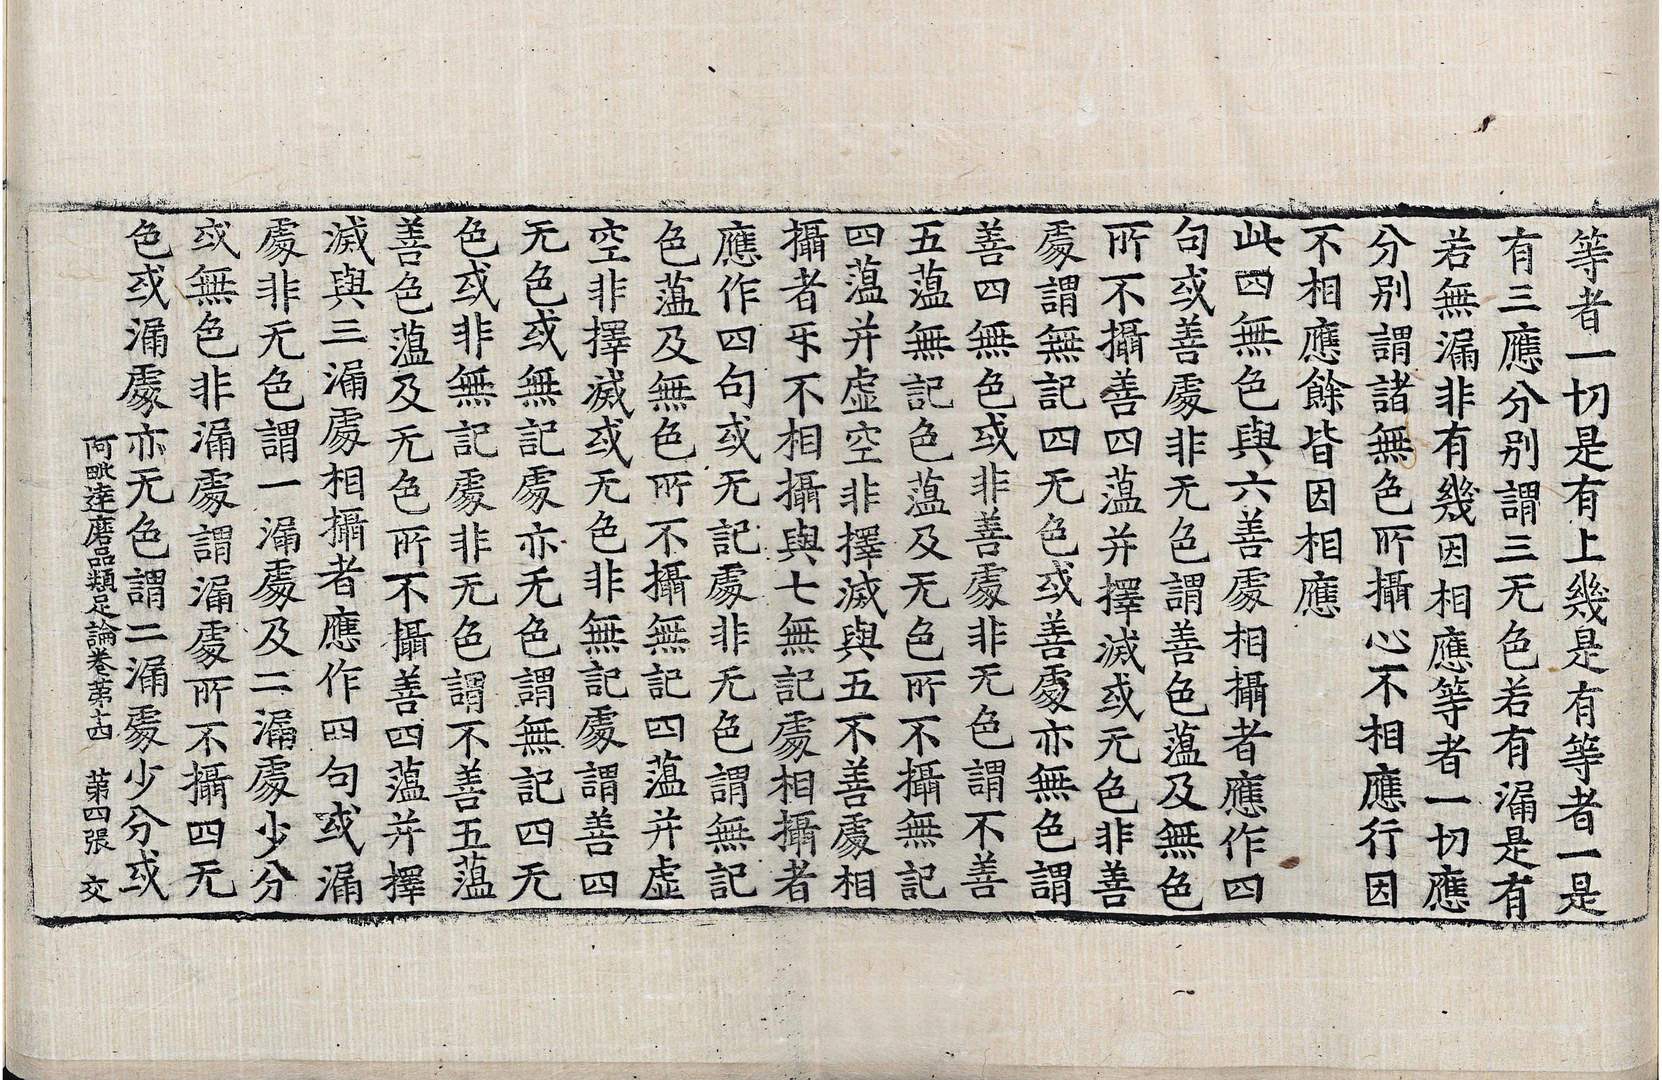 等者一切是有上幾是有等者一是
有三應分別謂三无色若有漏是有
若無漏非有幾因相應等者一切應
分別謂諸無色所攝心不相應行因
不相應餘皆因相應
此四無色與六善處相攝者應作四
句或善處非无色謂善色蕰及無色
所不攝善四蕰并擇滅或无色非善
處謂無記四无色或善處亦無色謂
善四無色或非善處非无色謂不善
五蕰無記色蕰及无色所不攝無記
四蕰并虛空非擇滅與五不善處相
攝者乑不相攝與七無記處相攝者
應作四句或无記處非无色謂無記
色蕰及無色所不攝無記四蕰并虛
空非擇滅或无色非無記處謂善四
无色或無記處亦无色謂無記四无
色或非無記處非无色謂不善五蕰
善色蕰及无色所不攝善四蕰并擇
滅與三漏處相攝者應作四句或漏
處非无色謂一漏處及二漏處少分
或無色非漏處謂漏處所不攝四无
色或漏處亦无色謂二漏處少分或
阿毗達磨品類足論卷第十四 第四張 交